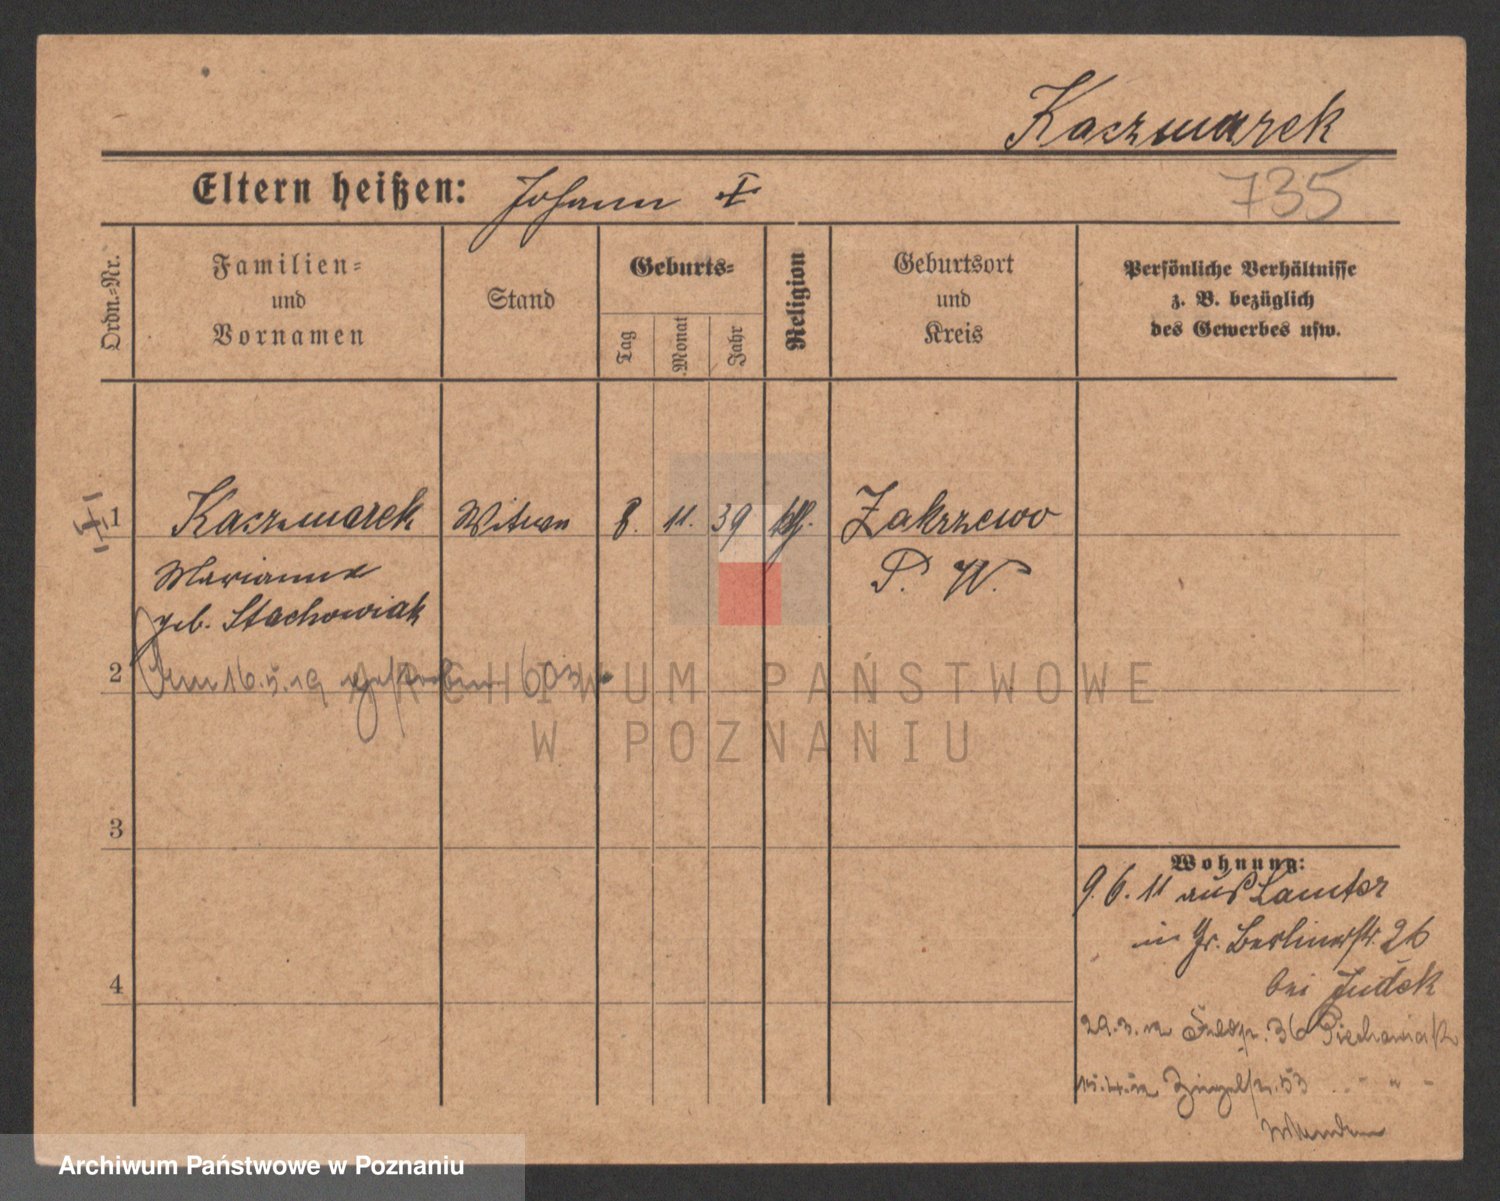 Kaczmarek
Eltern heißen: Johann †
735
Ordn.-Nr.
Familien-
und
Vornamen
Stand
Geburts-
Tag
Monat
Jahr
Religion
Geburtsort
und
Kreis
Persönliche Verhältnisse
z. B. bezüglich
des Gewerbes usw.
1
Kaczmarek Witwe 8. 11. 39 kth. Zakrzewo
Marianna P. W.
geb. Stachowiak
2
16.5.19 gestorben
3
4
Wohnung:
9.6.11 aus
in Gr. Berlinerstr. 26
bei Judek
29.3.12 Feldstr. 36 Piechowiak
15.4.12 Ziegelstr. 53 " "
ARCHIWUM PAŃSTWOWE
W POZNANIU
Archiwum Państwowe w Poznaniu